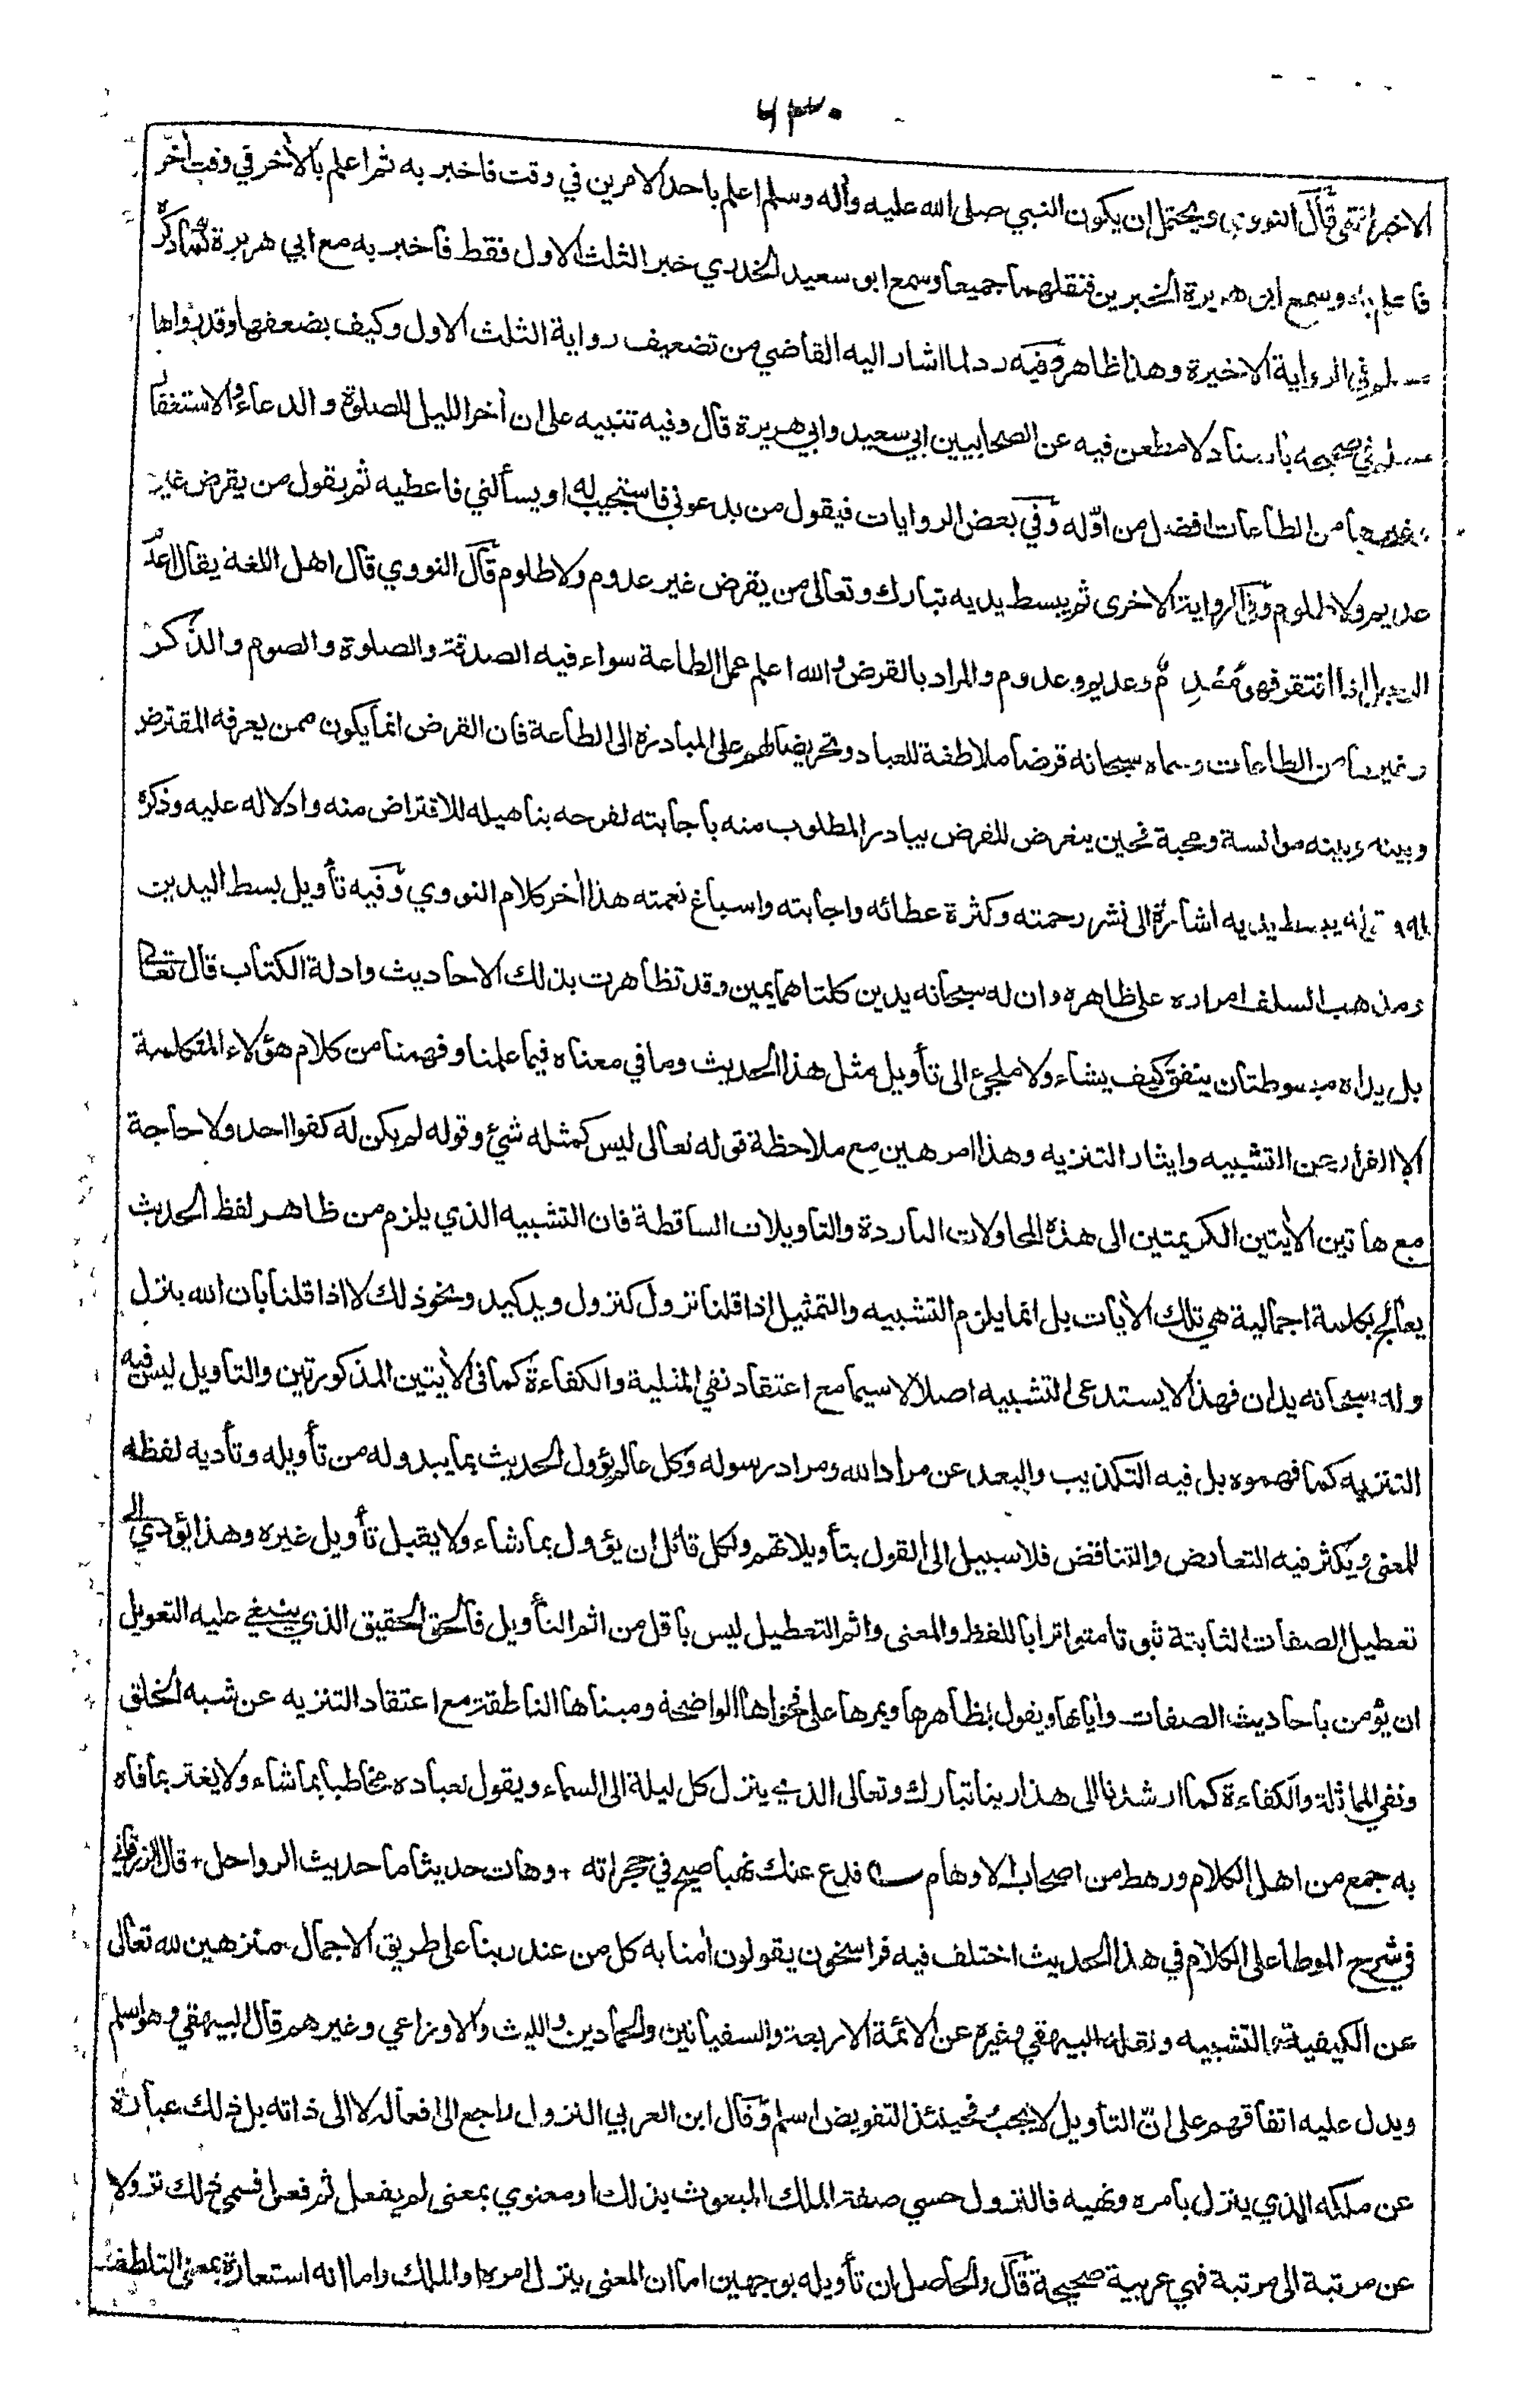 ٦٣٠
الاخير انتهى قال النووي ويحتمل ان يكون النبي صلى الله عليه وأله وسلم اعلم باحد الامرين في وقت فاخبر به ثم اعلم بالأخر في وقت أخر
فاعلم به وسمع ابو هريرة الخبرين فنقلهما جميعا وسمع ابو سعيد الخدري خبر الثلث الاول فقط فاخبر به مع ابي هريرة كما ذكره
مسلم في الرواية الاخيرة وهذا ظاهر وفيه رد لما اشار اليه القاضي من تضعيف رواية الثلث الاول وكيف يضعفها وقد رواها
مسلم في صحيحه باسناد لا مطعن فيه عن الصحابيين ابي سعيد وابي هريرة قال وفيه تنبيه على ان أخر الليل للصلوة والدعاء والاستغفار
وغيرها من الطاعات افضل من اوّله وفي بعض الروايات فيقول من يدعوني فاستجيب له او يسألني فاعطيه ثم يقول من يقرض غير
عديم ولا ظلوم وفي الرواية الاخرى ثم يبسط يديه تبارك وتعالى من يقرض غير عدوم ولا ظلوم قال النووي قال اهل اللغة يقال اعدم
الرجل اذا افتقر فهو مُعدِم وعديم وعدوم والمراد بالقرض والله اعلم عمل الطاعة سواء فيه الصدقة والصلوة والصوم والذكر
وغيرها من الطاعات وسماه سبحانه قرضا ملاطفة للعباد وتحريضا لهم على المبادرة الى الطاعة فان القرض انما يكون ممن يعرفه المقترض
وبينه وبينه موانسة ومحبة فحين يتعرض للقرض يبادر المطلوب منه باجابته لفرحه بتاهيله للاقتراض منه وادلاله عليه وذكره
له وقوله يبسط يديه اشارة الى نشر رحمته وكثرة عطائه واجابته واسباغ نعمته هذا أخر كلام النووي وفيه تأويل بسط اليدين
ومذهب السلف امراره على ظاهره وان له سبحانه يدين كلتاهما يمين وقد تظاهرت بذلك الاحاديث وادلة الكتاب قال تعالى
بل يداه مبسوطتان ينفق كيف يشاء ولا ملجئ الى تأويل مثل هذا الحديث وما في معناه فيما علمنا وفهمنا من كلام هؤلاء المتكلمة
الا الفرار عن التشبيه وايثار التنزيه وهذا امر هين مع ملاحظة قوله تعالى ليس كمثله شيء وقوله لم يكن له كفوا احد ولا حاجة
مع هاتين الأيتين الكريمتين الى هذه المحاولات الباردة والتاويلات الساقطة فان التشبيه الذي يلزم من ظاهر لفظ الحديث
يعالج بكلمة اجمالية هي تلك الأيات بل انما يلزم التشبيه والتمثيل اذا قلنا نزول كنزول ويد كيد ونحو ذلك لا اذا قلنا بان الله ينزل
وله سبحانه يدان فهذا لا يستدعى التشبيه اصلا لا سيما مع اعتقاد نفي المثلية والكفاءة كما في الأيتين المذكورتين والتاويل ليس فيه
التنزيه كما فهموه بل فيه التكذيب والبعد عن مراد الله ومراد رسوله وكل عالم يؤول الحديث بما يبدو له من تأويله وتأديه لفظه
للمعنى ويكثر فيه التعارض والتناقض فلا سبيل الى القول بتأويلاتهم ولكل قائل ان يؤول بما شاء ولا يقبل تأويل غيره وهذا يؤدي الى
تعطيل الصفات الثابتة ثبوتا متواترا باللفظ والمعنى واثم التعطيل ليس باقل من اثم التأويل فالحق الحقيق الذي ينبغي عليه التعويل
ان يؤمن باحاديث الصفات وأياتها ويقول بظاهرها ويمرها على فحواها الواضحة ومبناها الناطقة مع اعتقاد التنزيه عن شبه الخلق
ونفي المماثلة والكفاءة كما ارشدنا الى هذا ربنا تبارك وتعالى الذي ينزل كل ليلة الى السماء ويقول لعباده مخاطبا بما شاء ولا يغتر بما فاه
به جمع من اهل الكلام ورهط من اصحاب الاوهام فدع عنك نهبا صيح في حجراته + وهات حديثا ما حديث الرواحل + قال الزرقاني
في شرح الموطا على الكلام في هذا الحديث اختلف فيه فراسخون يقولون أمنا به كل من عند ربنا على طريق الاجمال منزهين لله تعالى
عن الكيفية والتشبيه ونقله البيهقي وغيره عن الائمة الاربعة والسفيانين والحمادين والليث والاوزاعي وغيرهم قال البيهقي وهو اسلم
ويدل عليه اتفاقهم على انّ التاويل لا يجب فحينئذ التفويض اسلم وقال ابن العربي النزول راجع الى افعاله لا الى ذاته بل ذلك عبارة
عن ملكه الذي ينزل بامره ونهيه فالنزول حسي صفة الملك المبعوث بذلك او معنوي بمعنى لم يفعل ثم فعل فسمى ذلك نزولا
عن مرتبة الى مرتبة فهي عربية صحيحة قال والحاصل ان تأويله بوجهين اما ان المعنى ينزل امره او الملك واما انه استعارة بمعنى التلطف